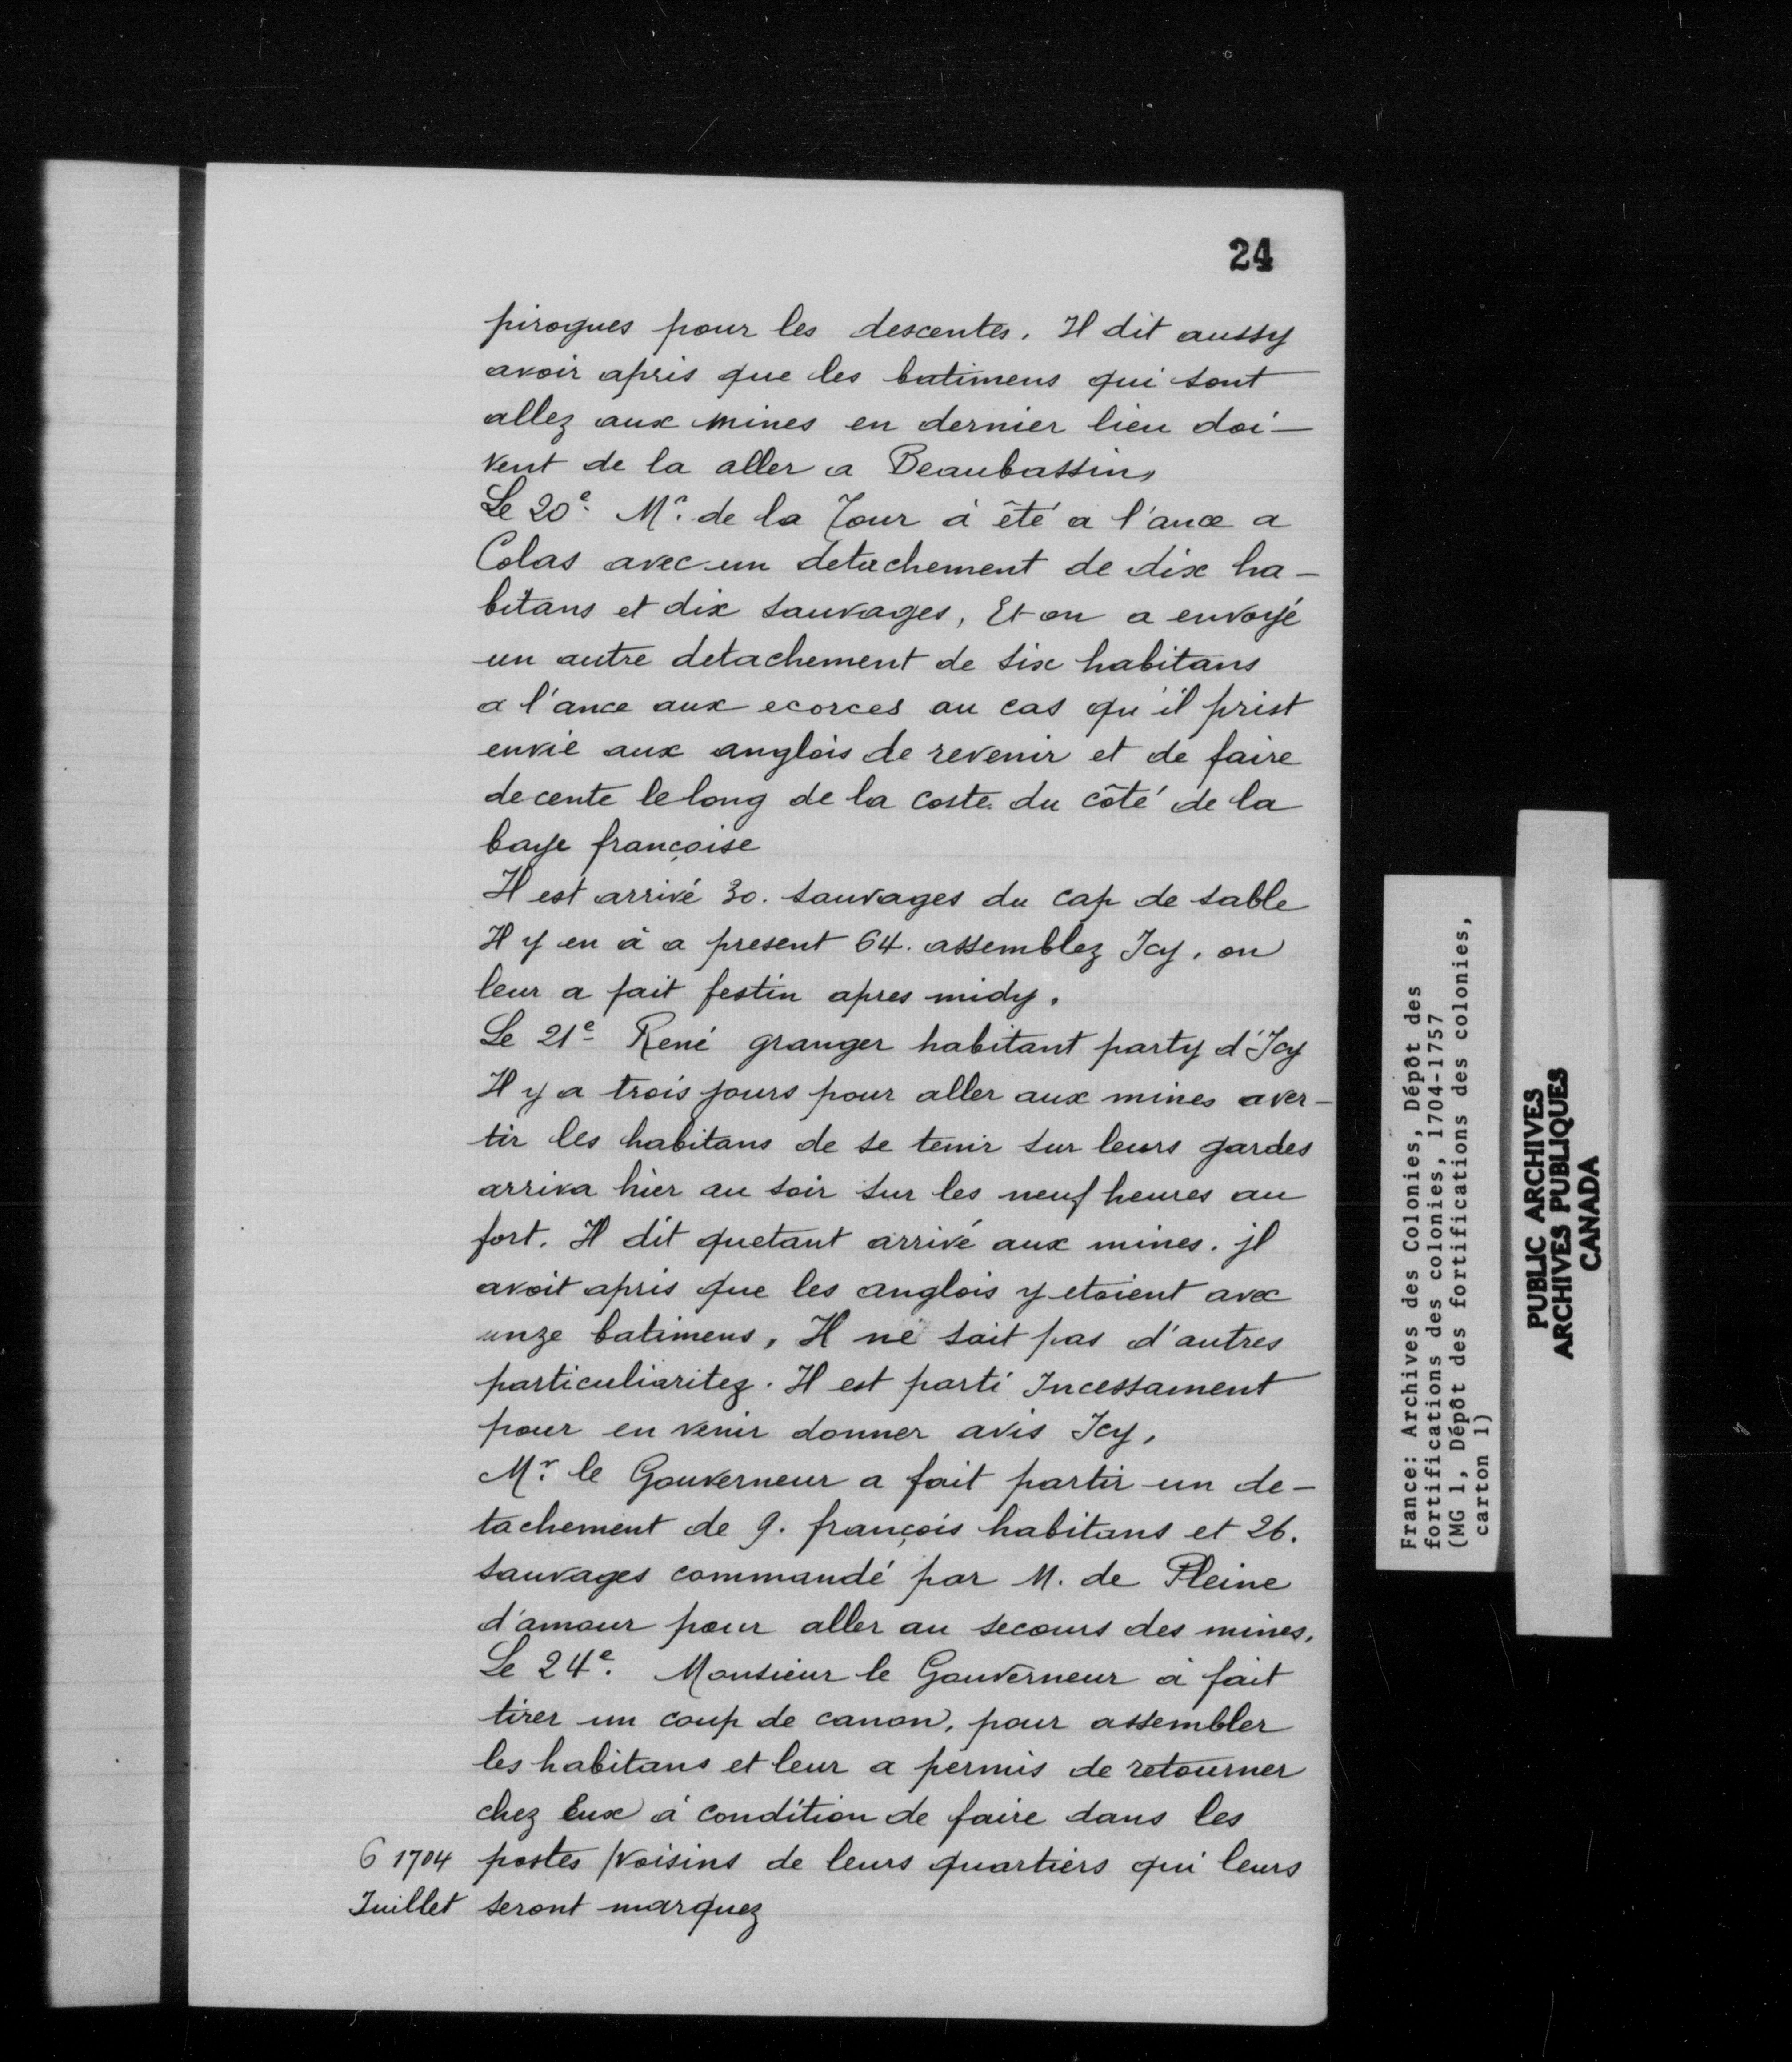 24
pirogues pour les descentes. Il dit aussy
avoir apris que les batimens qui sont
allez aux mines en dernier lieu doi-
vent de la aller a Beaubassin,
Le 20e. Mr. de la Tour à êté a l'ance a
Colas avec un detachement de dix ha-
bitans et dix sauvages, Et on a envoyé
un autre detachement de six habitans
a l'ance aux ecorces au cas qu'il prist
envie aux anglois de revenir et de faire
decente le long de la coste du côté de la
baye françoise
Il est arrivé 30. sauvages du cap de sable
Il y en à a present 64. assemblez Icy, on
leur a fait festin apres midy.
Le 21e René granger habitant party d'Icy
Il y a trois jours pour aller aux mines aver-
tir les habitans de se tenir sur leurs gardes
arriva hier au soir sur les neuf heures au
fort. Il dit quetant arrivé aux mines. jl
avoit apris que les anglois y etoient avec
unze batimens, Il ne sait pas d'autres
particuliaritez. Il est parti Incessament
pour en venir donner avis Icy,
Mr. le Gouverneur a fait partir un de-
tachement de 9. françois habitans et 26.
sauvages commandé par M. de Pleine
d'amour pour aller au secours des mines.
Le 24e. Monsieur le Gouverneur à fait
tirer un coup de canon, pour assembler
les habitans et leur a permis de retourner
chez Eux à condition de faire dans les
6 1704 postes /voisins de leurs quartiers qui leurs
Juillet seront marquez
France: Archives des Colonies, Dépôt des
fortifications des colonies, 1704-1757
(MG 1, Dépôt des fortifications des colonies,
carton 1)
PUBLIC ARCHIVES
ARCHIVES PUBLIQUES
CANADA